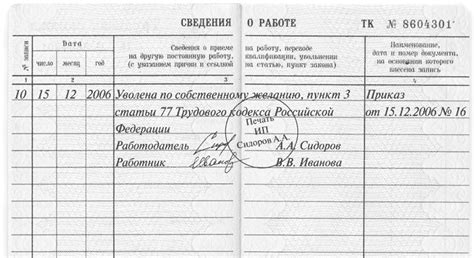 СВЕДЕНИЯ О РАБОТЕ ТК № 8604301
№ записи
Дата
число месяц год
Сведения о приеме на работу, переводе
на другую постоянную работу, квалификации, увольнении
(с указанием причин и ссылкой на статью, пункт закона)
Наименование,
дата и номер документа,
на основании которого
внесена запись
1 2 3 4
10 15 12 2006 Уволена по собственному желанию, пункт 3 Приказ
статьи 77 Трудового кодекса Российской от 15.12.2006 № 16
Федерации
Работодатель А.А. Сидоров
Работник Иванова В.В. Иванова
Печать
ИП
Сидоров А.А.